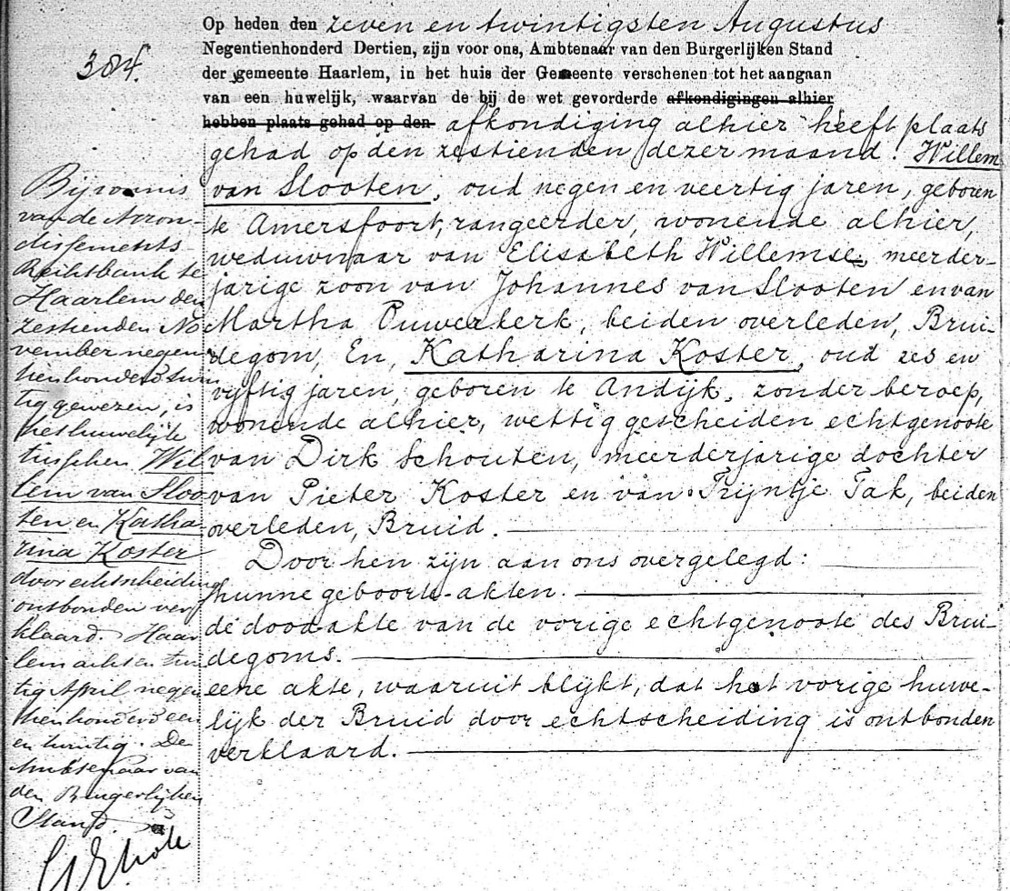 384.
Op heden den zeven en twintigsten Augustus
Negentienhonderd Dertien, zijn voor ons, Ambtenaar van den Burgerlijken Stand
der gemeente Haarlem, in het huis der Gemeente verschenen tot het aangaan
van een huwelijk, waarvan de bij de wet gevorderde afkondigingen alhier
hebben plaats gehad op den afkondiging alhier heeft plaats
gehad op den zestienden dezer maand: Willem
van Slooten, oud negen en veertig jaren, geboren
te Amersfoort, rangeerder, wonende alhier,
weduwnaar van Elisabeth Willemse, meerder-
jarige zoon van Johannes van Slooten en van
Martha Ouwerkerk, beiden overleden, Brui-
degom, En, Katharina Koster, oud zes en
vijftig jaren, geboren te Andijk, zonder beroep,
wonende alhier, wettig gescheiden echtgenoote
van Dirk Schouten, meerderjarige dochter
van Pieter Koster en van Trijntje Tak, beiden
overleden, Bruid.
Door hen zijn aan ons overgelegd:
hunne geboorte-akten.
de doodakte van de vorige echtgenoote des Brui-
degoms.
eene akte, waaruit blijkt, dat het vorige huwe-
lijk der Bruid door echtscheiding is ontbonden
verklaard.
Bij vonnis
van de Arron-
dissements
Rechtbank te
Haarlem den
zestienden No
vember negen
tienhonderd twin
tig gewezen, is
het huwelijk
tusschen Wil
lem van Sloo
ten en Katha
rina Koster
door echtscheiding
ontbonden ver
klaard. Haar
lem acht en twin
tig April negen
tienhonderd een
en twintig. De
Ambtenaar van
den Burgerlijken
Stand.